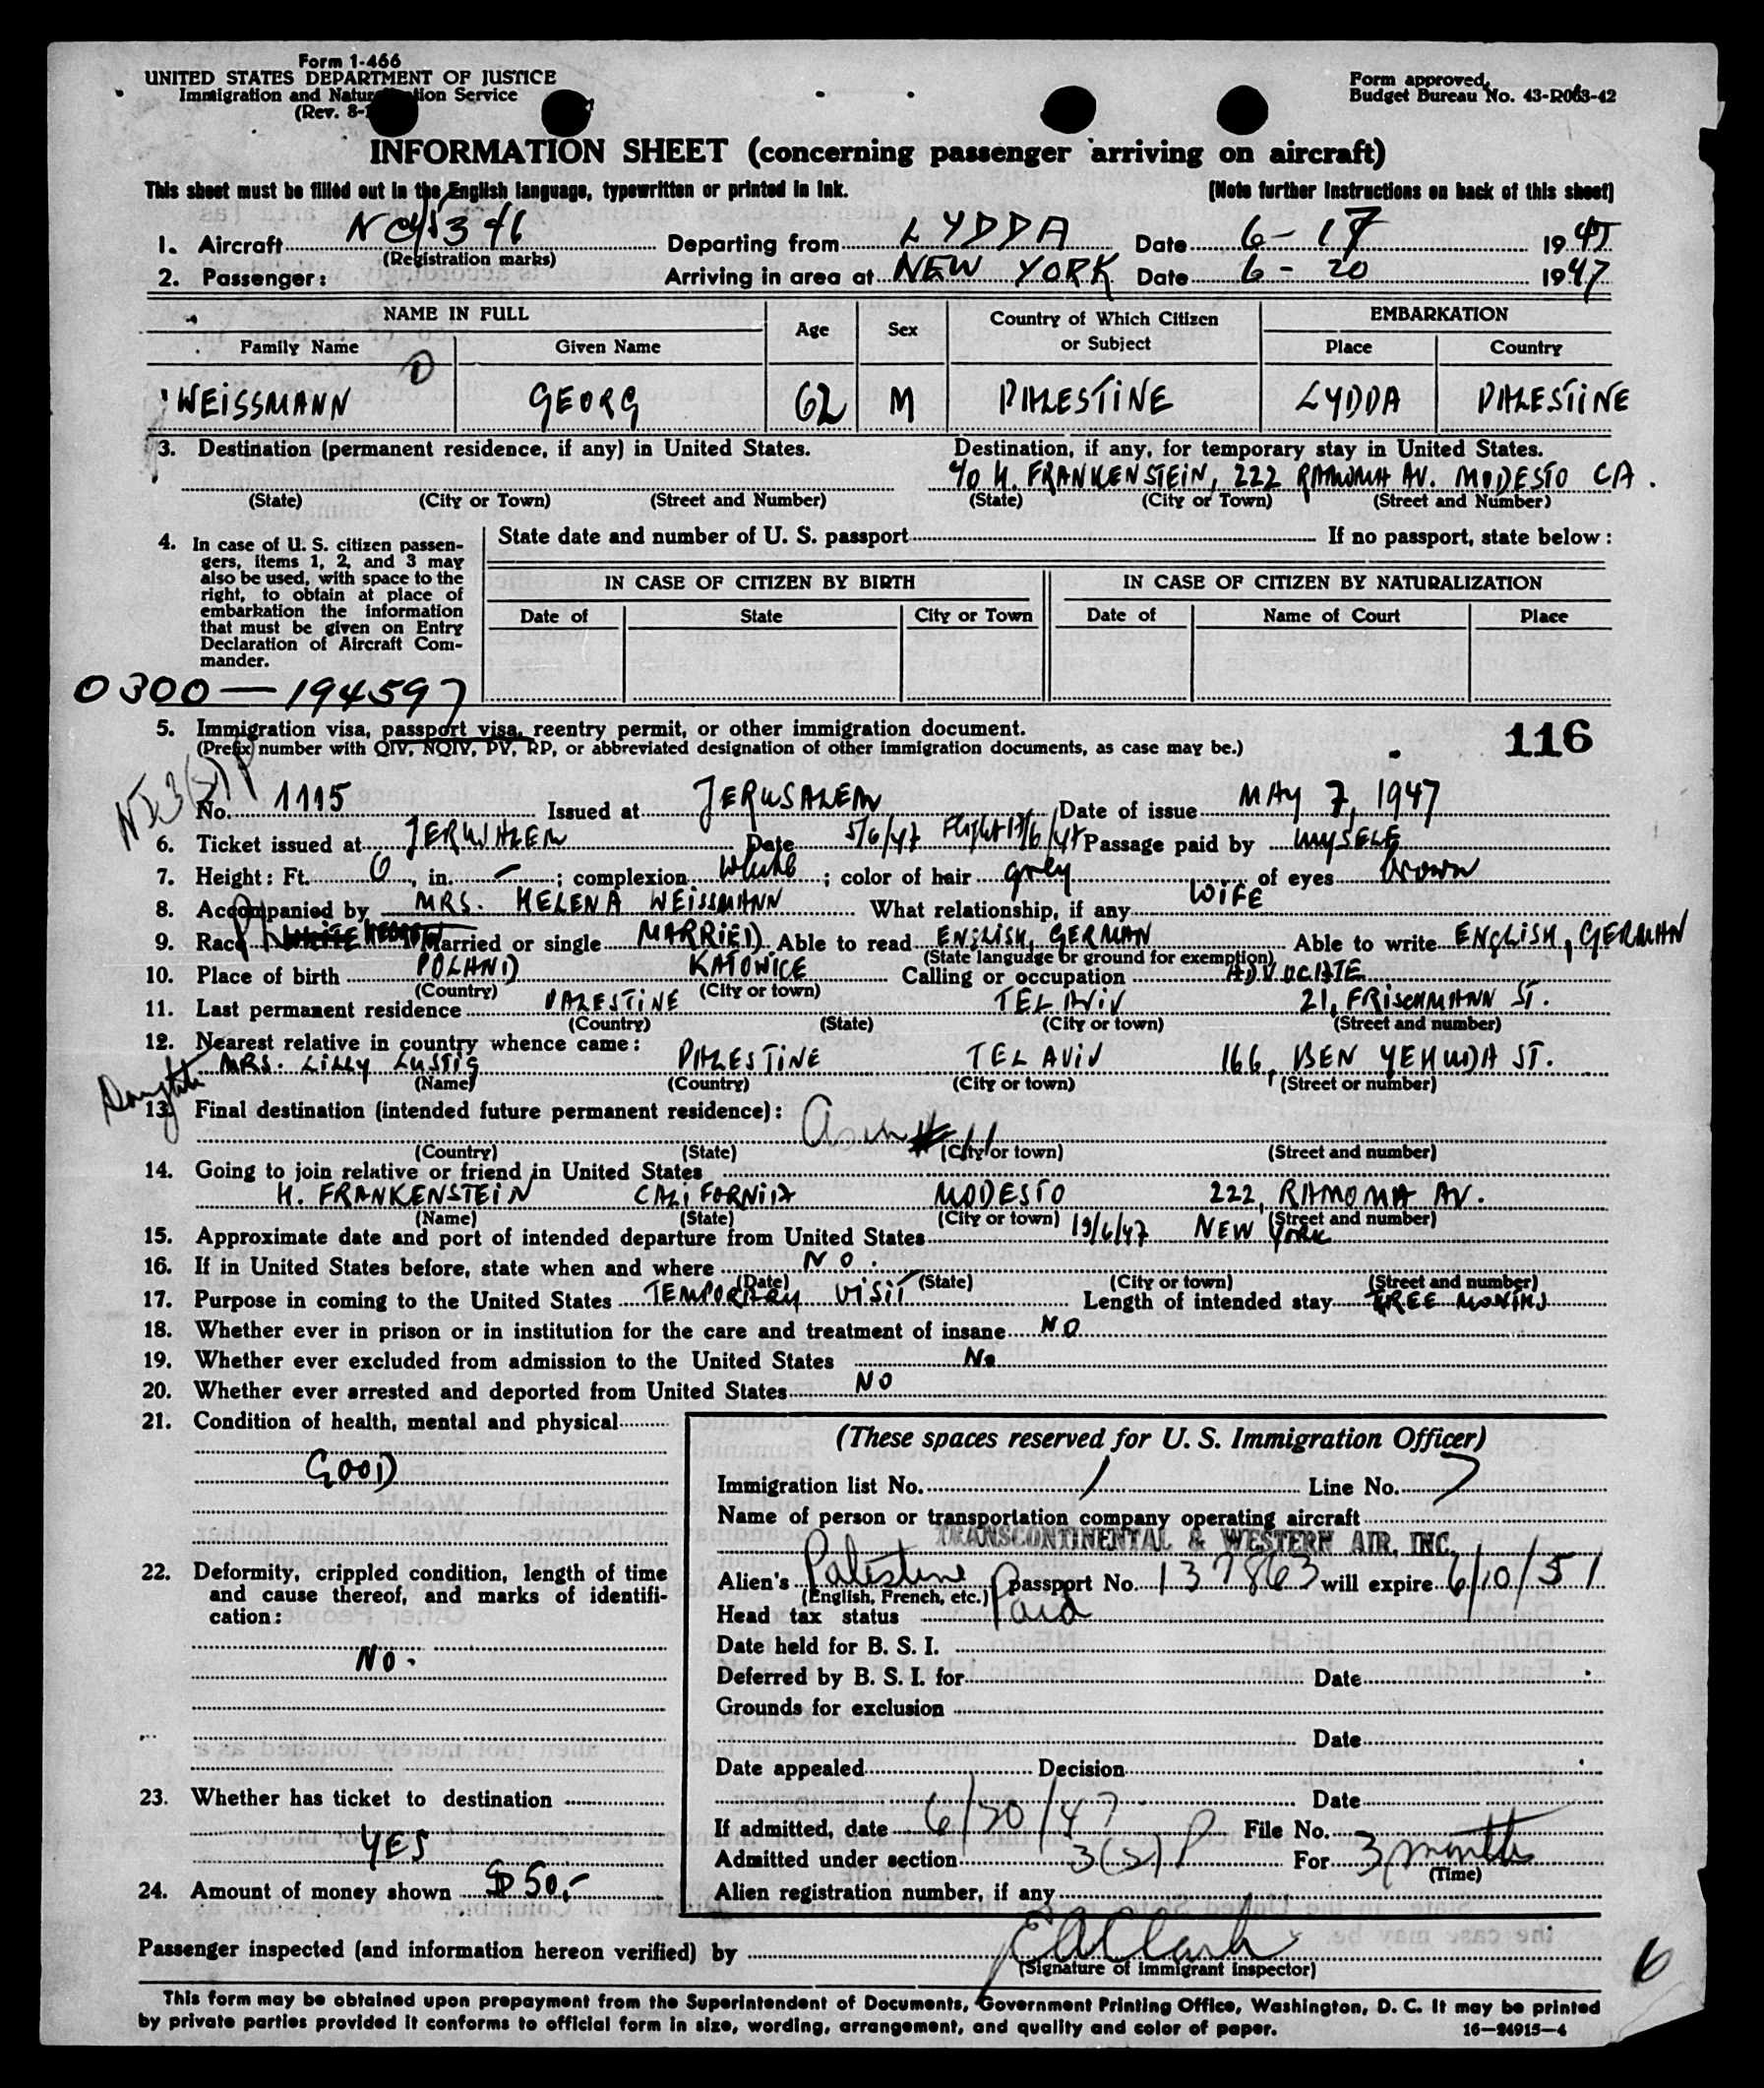 Form 1-466
UNITED STATES DEPARTMENT OF JUSTICE
Immigration and Natur tion Service
(Rev. 8-
Form approved.
Budget Bureau No. 43-R063-42
INFORMATION SHEET (concerning passenger arriving on aircraft)
This sheet must be filled out in the English language, typewritten or printed in ink. (Note further instructions on back of this sheet)
1. Aircraft Departing from LYDDA Date 6-17 19
(Registration marks)
2. Passenger: Arriving in area at NEW YORK Date 6-20 1947
NAME IN FULL Age Sex Country of Which Citizen or Subject EMBARKATION
Family Name Given Name Place Country
WEISSMANN GEORG 62 M PALESTINE LYDDA PALESTINE
3. Destination (permanent residence, if any) in United States. Destination, if any, for temporary stay in United States.
c/o H. FRANKENSTEIN, 222 RAMONA AV. MODESTO CA.
(State) (City or Town) (Street and Number) (State) (City or Town) (Street and Number)
4. In case of U. S. citizen passengers, items 1, 2, and 3 may also be used, with space to the right, to obtain at place of embarkation the information that must be given on Entry Declaration of Aircraft Commander.
State date and number of U. S. passport If no passport, state below:
IN CASE OF CITIZEN BY BIRTH IN CASE OF CITIZEN BY NATURALIZATION
Date of State City or Town Date of Name of Court Place
0300-194597
5. Immigration visa, passport visa, reentry permit, or other immigration document.
(Prefix number with QIV, NQIV, PV, RP, or abbreviated designation of other immigration documents, as case may be.)
116
No. 1115 Issued at JERUSALEM Date of issue MAY 7, 1947
6. Ticket issued at JERUSALEM Date 5/6/47 Flight 17/6/47 Passage paid by MYSELF
7. Height: Ft. 6, in. -; complexion white; color of hair grey of eyes brown
8. Accompanied by MRS. HELENA WEISSMANN What relationship, if any WIFE
9. Race Married or single MARRIED Able to read ENGLISH, GERMAN Able to write ENGLISH, GERMAN
(State language or ground for exemption)
10. Place of birth POLAND KATOWICE Calling or occupation ADVOCATE
(Country) (City or town)
11. Last permanent residence PALESTINE TEL AVIV 21, FRISCHMANN ST.
(Country) (State) (City or town) (Street and number)
12. Nearest relative in country whence came:
Daughter MRS. LILLY LUSTIG PALESTINE TEL AVIV 166, BEN YEHUDA ST.
(Name) (Country) (City or town) (Street or number)
13. Final destination (intended future permanent residence):
(Country) (State) (City or town) (Street and number)
14. Going to join relative or friend in United States
H. FRANKENSTEIN CALIFORNIA MODESTO 222, RAMONA AV.
(Name) (State) (City or town) (Street and number)
15. Approximate date and port of intended departure from United States 19/6/47 NEW YORK
16. If in United States before, state when and where NO.
(Date) (State) (City or town) (Street and number)
17. Purpose in coming to the United States TEMPORARY VISIT Length of intended stay TREE MONTHS
18. Whether ever in prison or in institution for the care and treatment of insane NO
19. Whether ever excluded from admission to the United States No
20. Whether ever arrested and deported from United States NO
21. Condition of health, mental and physical
GOOD
22. Deformity, crippled condition, length of time and cause thereof, and marks of identification:
NO.
23. Whether has ticket to destination
YES
24. Amount of money shown $50,-
(These spaces reserved for U. S. Immigration Officer)
Immigration list No. 1 Line No. 7
Name of person or transportation company operating aircraft
TRANSCONTINENTAL & WESTERN AIR, INC.
Alien's Palestine passport No. 137863 will expire 6/10/51
(English, French, etc.)
Head tax status Paid
Date held for B. S. I.
Deferred by B. S. I. for Date
Grounds for exclusion
Date
Date appealed Decision
Date
If admitted, date 6/20/47 File No.
Admitted under section 3(2) P For 3 months
(Time)
Alien registration number, if any
Passenger inspected (and information hereon verified) by E A Clark
(Signature of immigrant inspector)
6
This form may be obtained upon prepayment from the Superintendent of Documents, Government Printing Office, Washington, D. C. It may be printed
by private parties provided it conforms to official form in size, wording, arrangement, and quality and color of paper. 16-24915-4